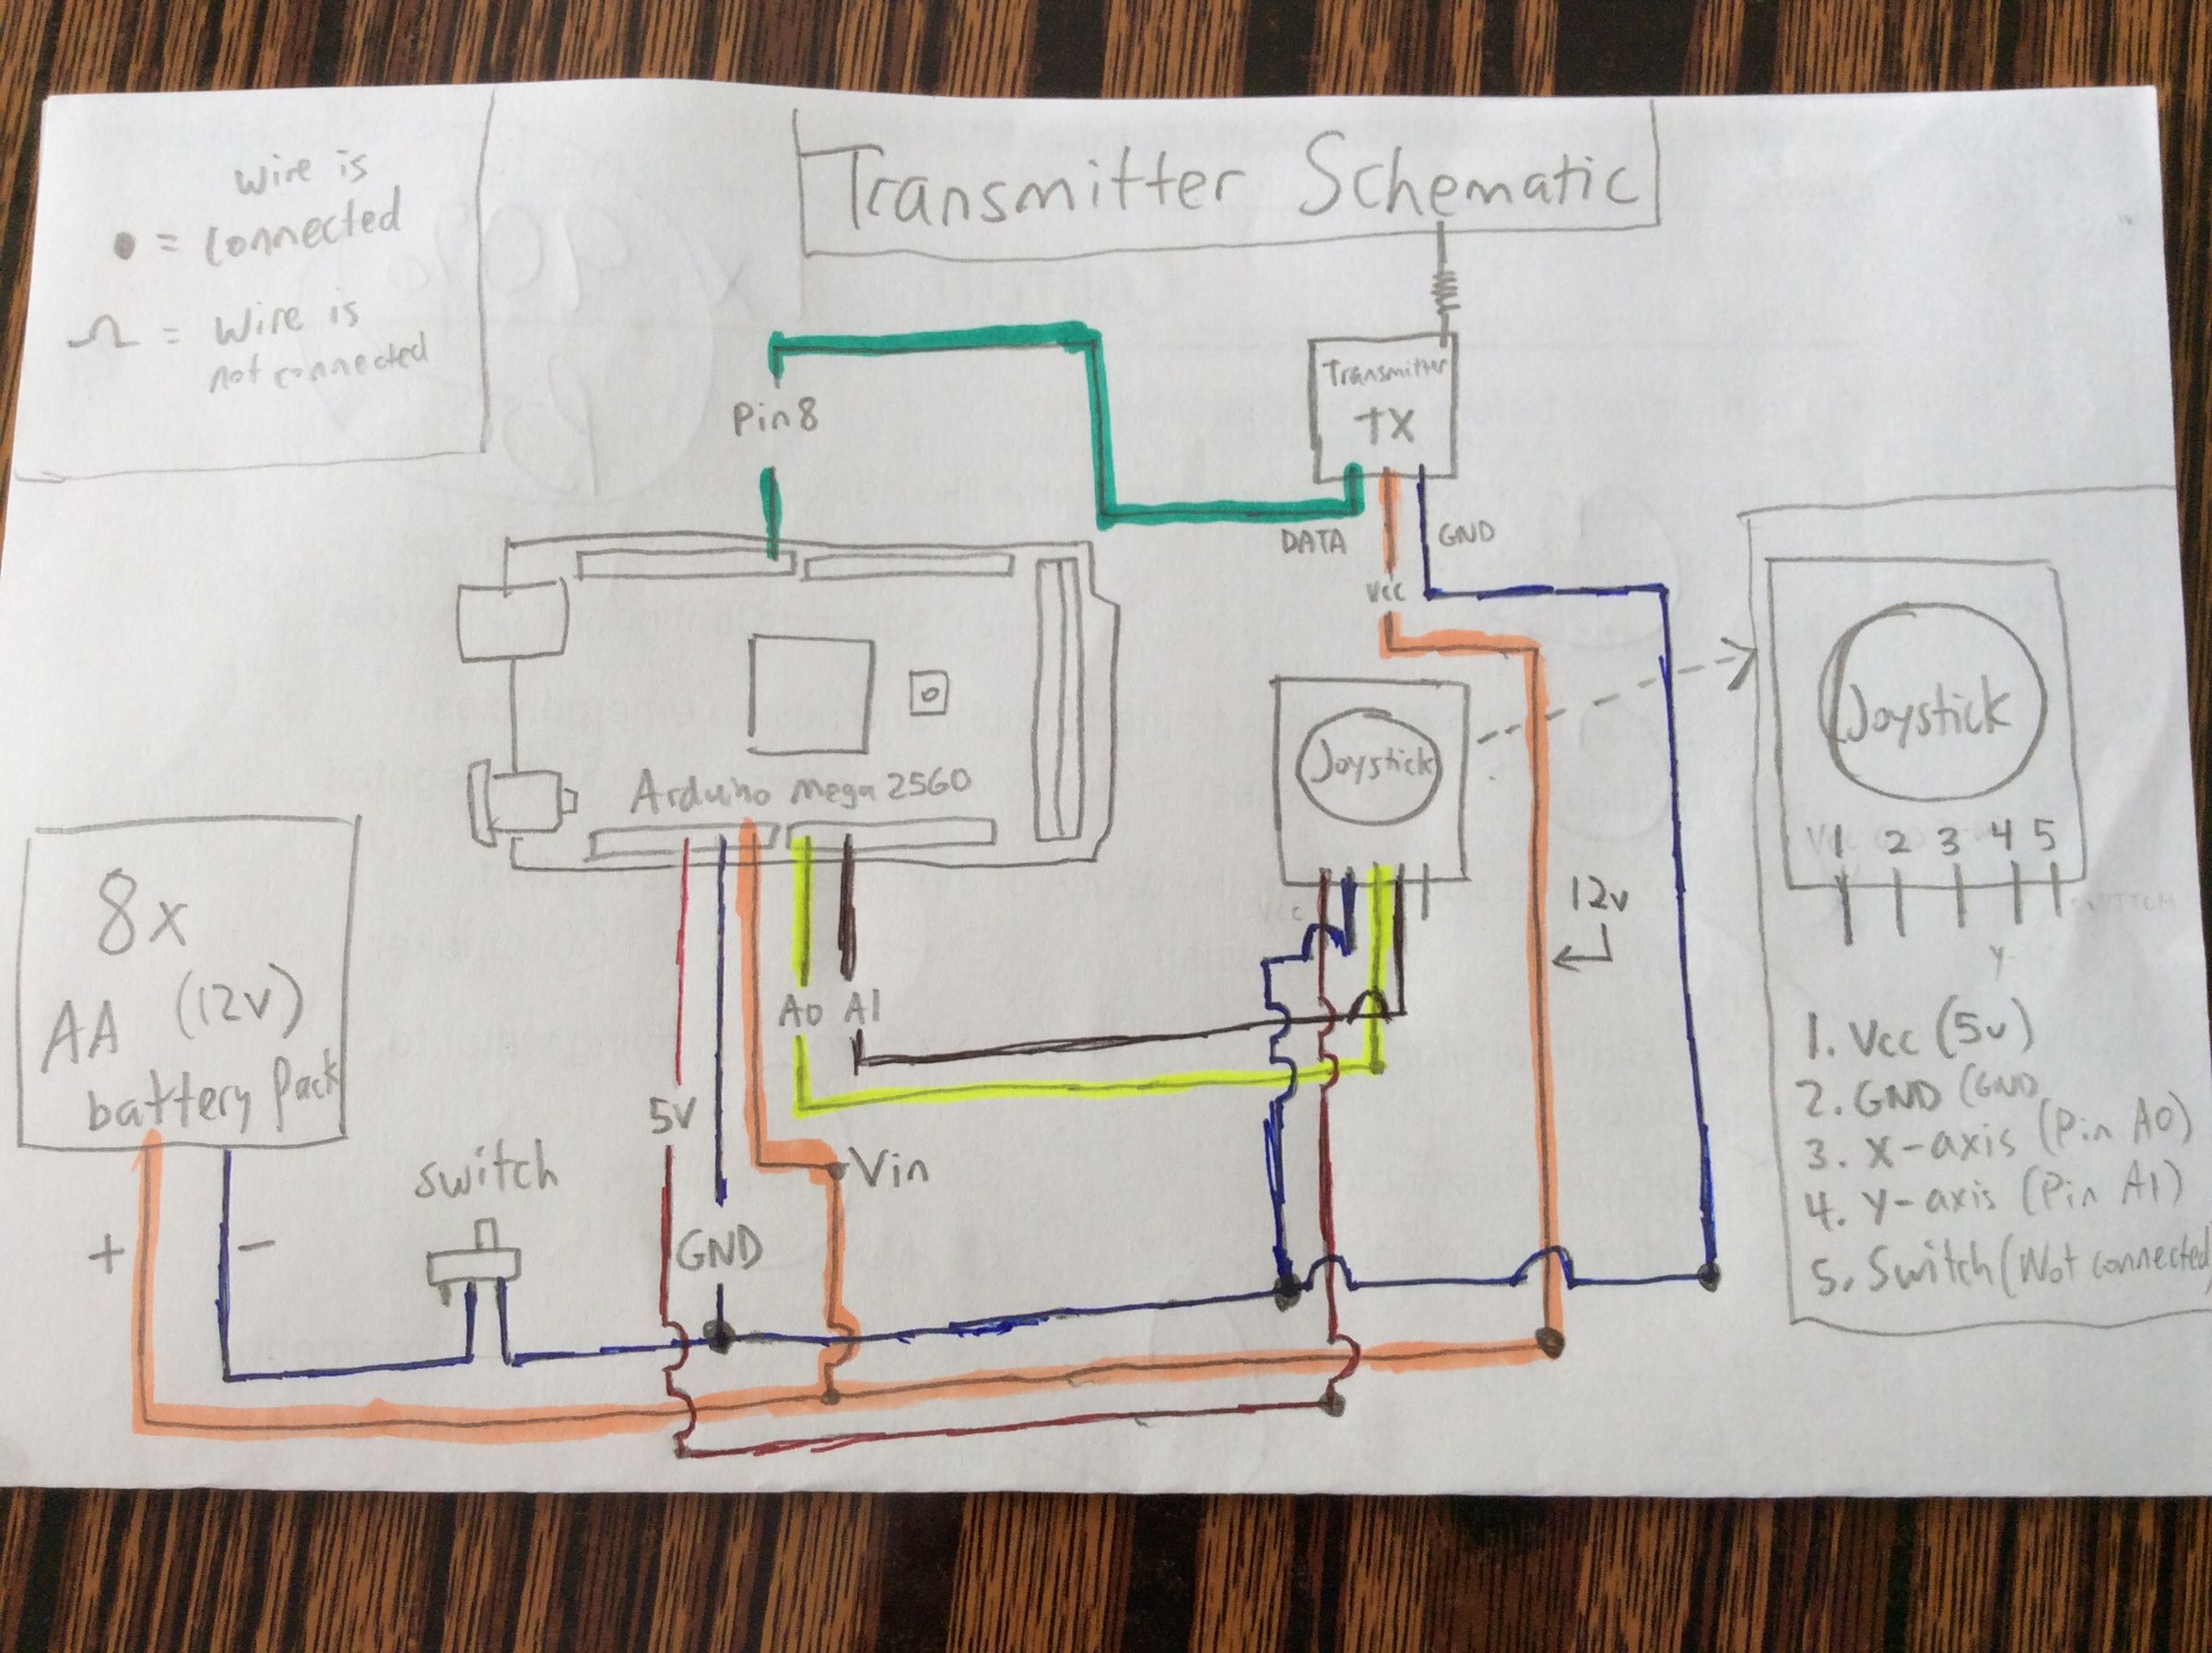 wire is
• = connected
= wire is
not connected
Transmitter Schematic
Transmitter
TX
Pin 8
DATA
GND
Vcc
Joystick
Joystick
1 2 3 4 5
Arduino Mega 2560
8x
AA (12v)
battery Pack
12v
A0 A1
Vcc
Y
SWITCH
1. Vcc (5v)
2. GND (GND
3. X-axis (Pin A0)
4. Y-axis (Pin A1)
5. Switch (Not connected)
5V
switch
Vin
GND
+
-